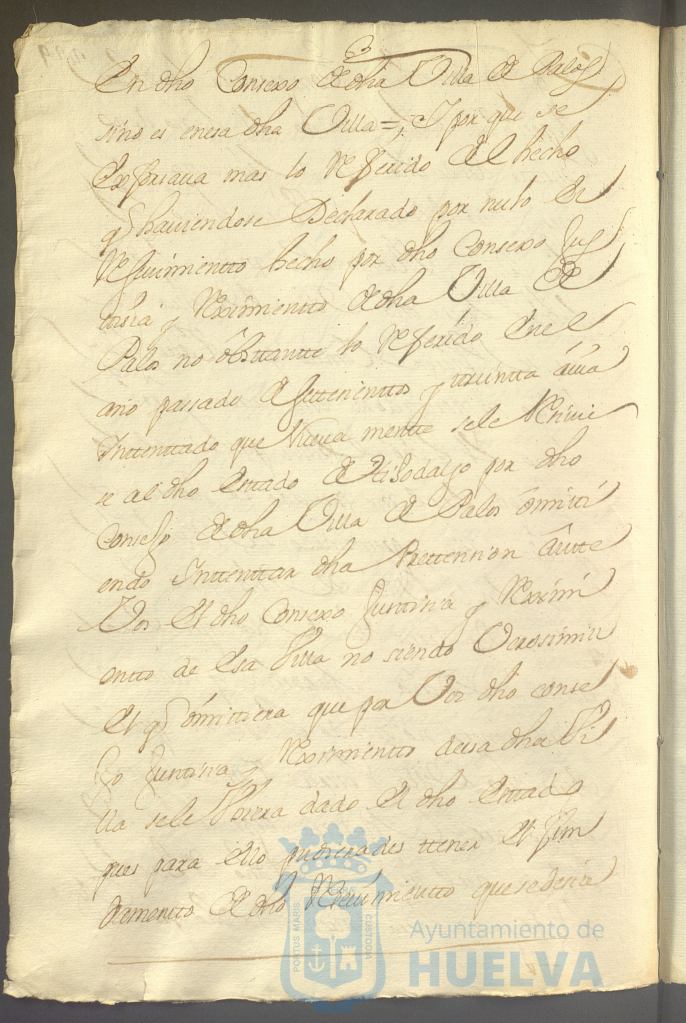 en dho Consexo de dha Villa de Palos
sino es en esa dha Villa = Y por que se
esforsava mas lo referido del hecho
q haviendose Declarado por nulo el
resevimientto hecho por dho Consexo Jus
tisia y Reximientto de dha Villa de
Palos no obsttantte lo referido en el
año passado de settesienttos y treintta avia
Inttenttado que nueva mentte se le recivie
se al dho esttado de Hijodalgo por dho
Consejo de dha Villa de Palos omitti
endo Inttenttar dha Prettension antte
Vos el dho Consexo Justisia y Reximi
entto de esa Villa no siendo Verosimil
el q omittiera que por Vos dho conse
jo Justisia y Reximientto de esa dha Vi
lla se le Vbiera dado el dho esttado
pues para ello pudierades ttener el fun
damentto del dho Resevimientto que se desia
Ayuntamiento de
HUELVA
PORTUS MARIS
CUSTODIA